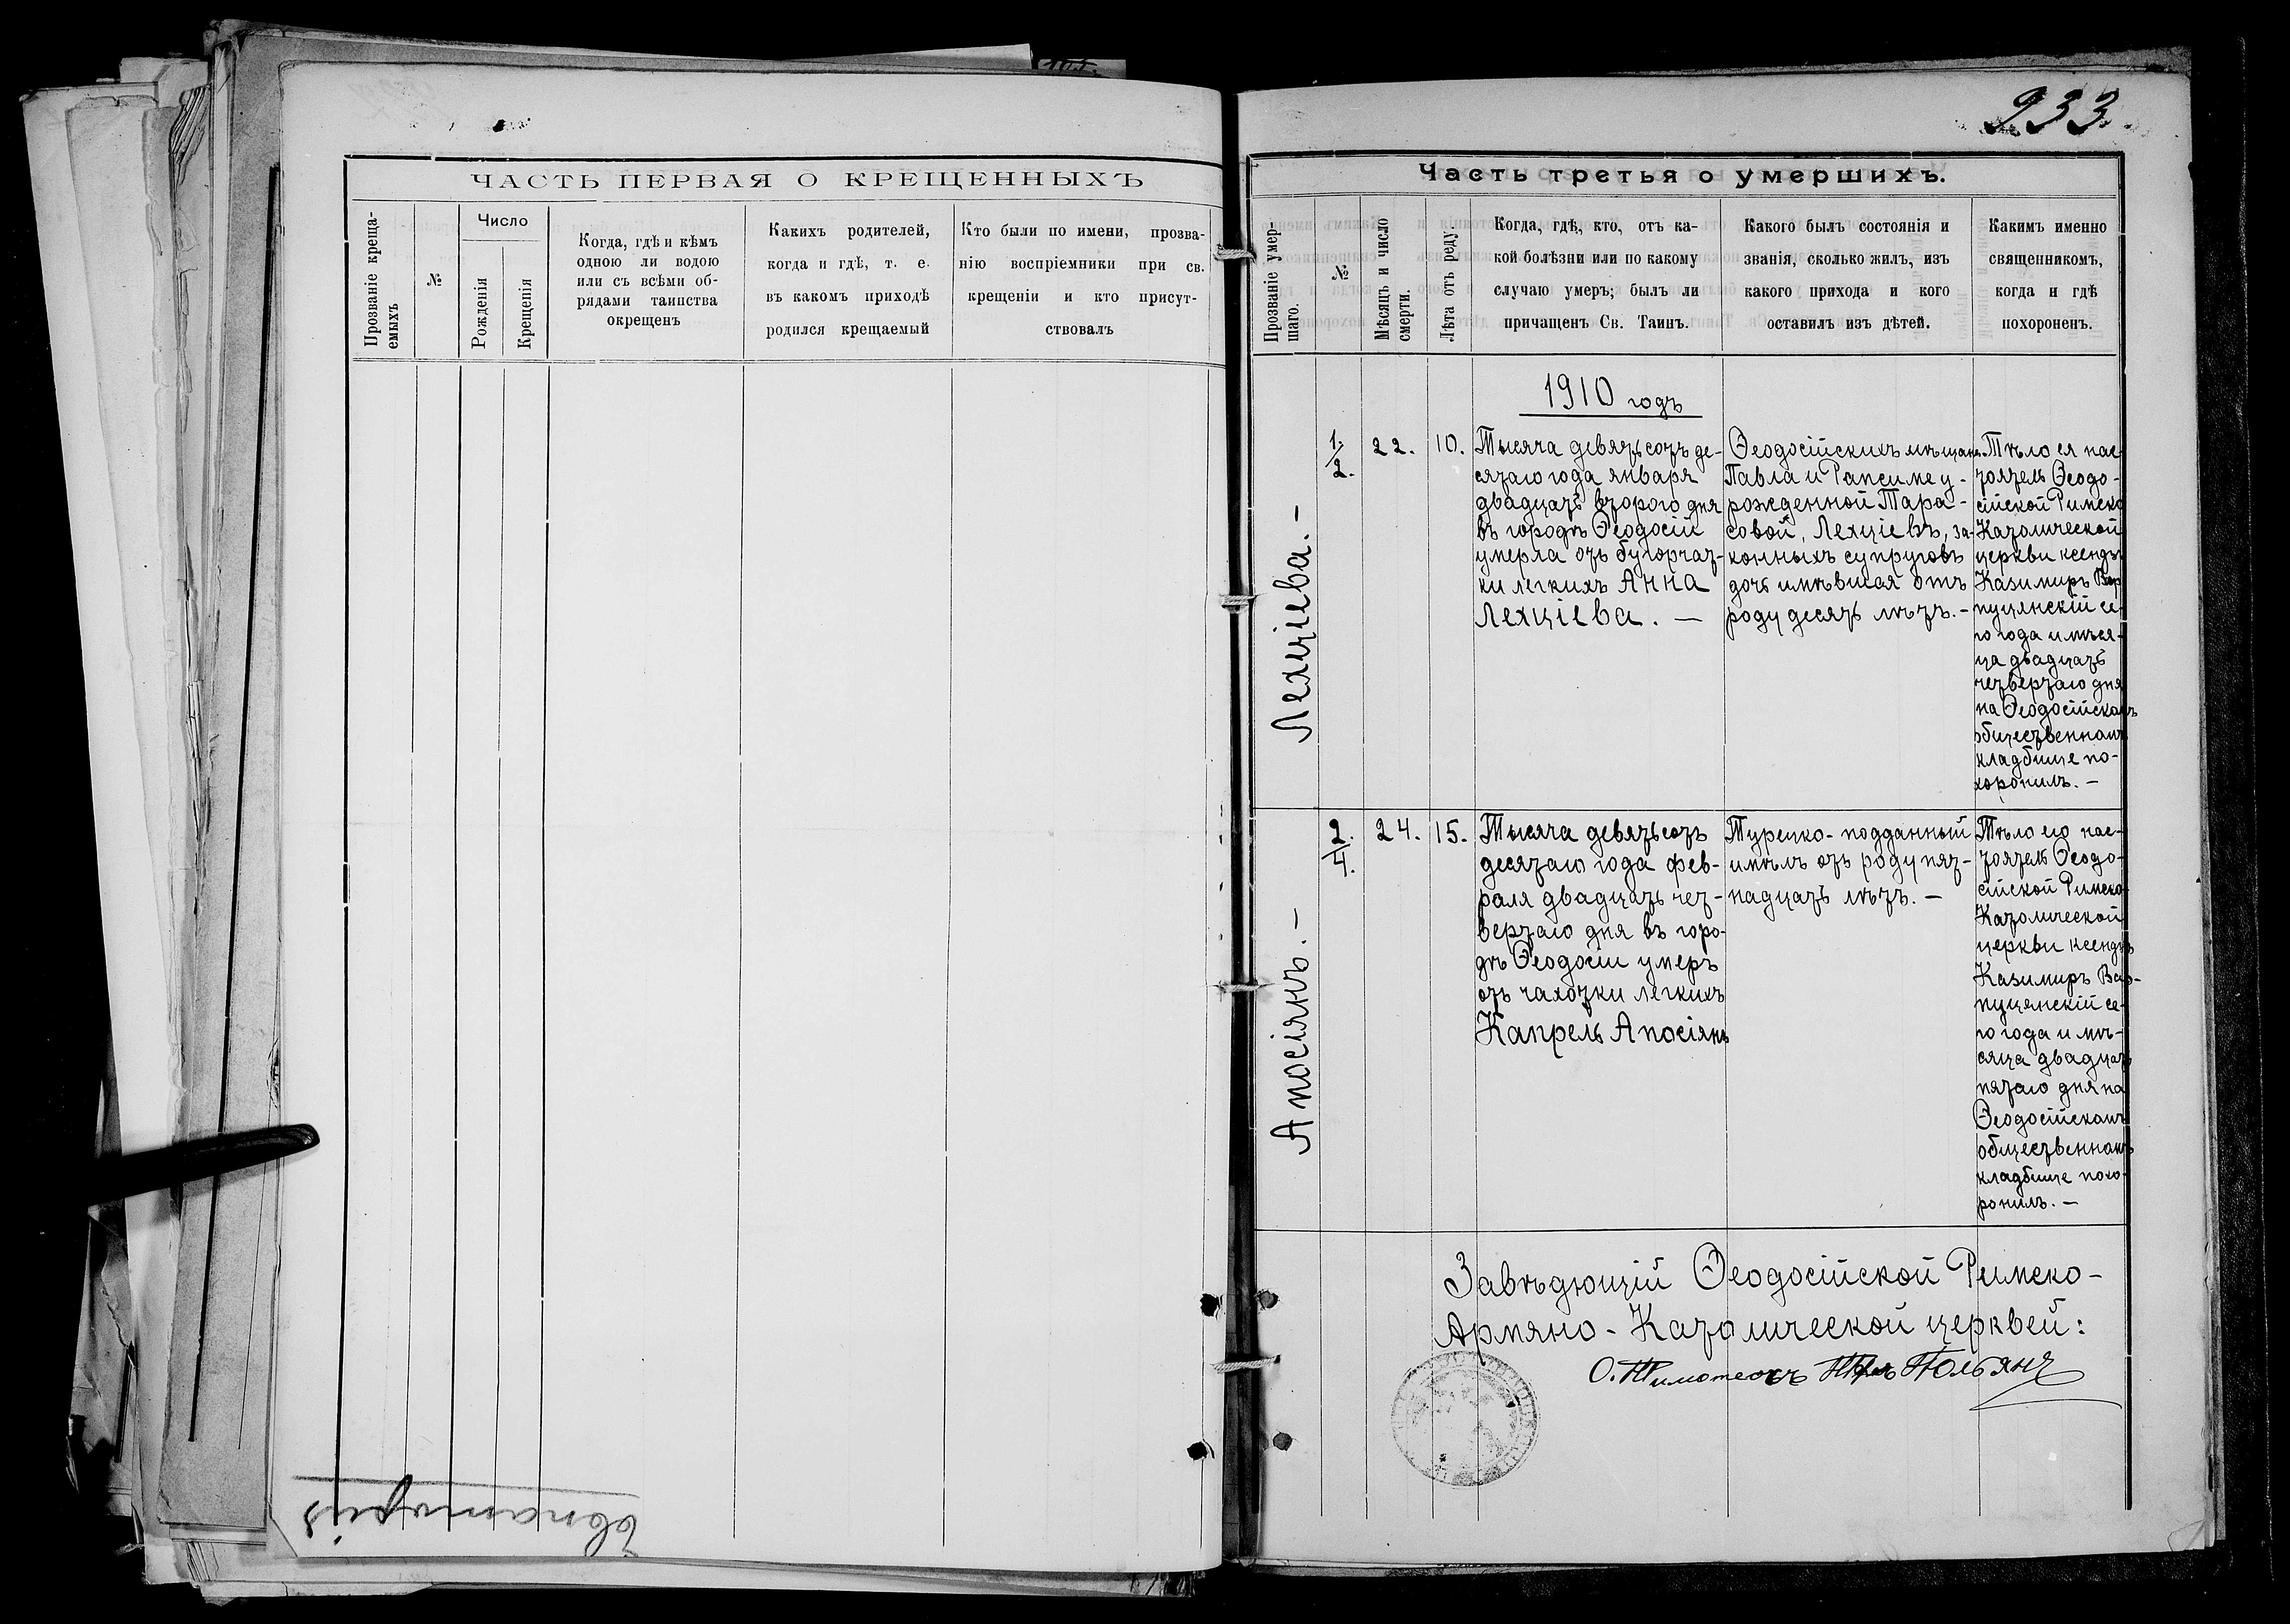 ЧАСТЬ ПЕРВАЯ О КРЕЩЕННЫХЪ
Прозваніе креща-
емыхъ
№
Число
Рожденія
Крещенія
Когда, гдѣ и кѣмъ
одною ли водою
или съ всѣми об-
рядами таинства
окрещенъ
Какихъ родителей,
когда и гдѣ, т. е.
въ какомъ приходѣ
родился крещаемый
Кто были по имени, прозва-
нію воспріемники при св.
крещеніи и кто присут-
ствовалъ
Евпаторія
233.
Часть третья о умершихъ.
Прозваніе умер-
шаго.
№
Мѣсяцъ и число
смерти.
Лѣта отъ роду.
Когда, гдѣ, кто, отъ ка-
кой болѣзни или по какому
случаю умеръ; былъ ли
причащенъ Св. Таинъ.
Какого былъ состоянія и
званія, сколько жилъ, изъ
какого прихода и кого
оставилъ изъ дѣтей.
Каким именно
священникомъ,
когда и гдѣ
похороненъ.
1910 годъ
Лехціева. –
1.
2.
22.
10.
Тысяча девятьсотъ де-
сятаго года января
двадцать второго дня
въ городѣ Ѳеодосіи
умерла отъ бугорчат-
ки легкихъ Анна
Лехціева. —
Ѳеодосійскихъ мѣщанъ
Павла и Рапсиме у-
рожденной Тара-
совой, Лехціевъ, за-
конныхъ супруговъ
дочь имѣвшая отъ
роду десять лѣтъ. –
Тѣло ея нас-
тоятель Ѳеодо-
сійской Римско
Католической
церкви ксендзъ
Казимиръ Вар
пуцянскій се-
го года и мѣся-
ца двадцать
четвертаго дня
на Ѳеодосійскомъ
общественномъ
кладбище по-
хоронилъ. –
Апосіянъ. –
2.
4.
24.
15.
Тысяча девятьсотъ
десятаго года фев-
раля двадцать чет-
вертаго дня въ горо-
дѣ Ѳеодосіи умеръ
отъ чахотки легкихъ
Капрель Апосіянъ
Турецко-подданный
имѣлъ отъ роду пят-
надцать лѣтъ. –
Тѣло его нас-
тоятель Ѳеодо-
сійской Римско
Католической
церкви ксендзъ
Казимиръ Вар-
пуцянскій се-
го года и мѣ-
сяца двадцать
пятаго дня на
Ѳеодосійскомъ
общественномъ
кладбище похо-
ронилъ. –
Завѣдующій Ѳеодосійской Римско-
Армяно-Католической церквей:
О. Тимотеосъ Тольянъ